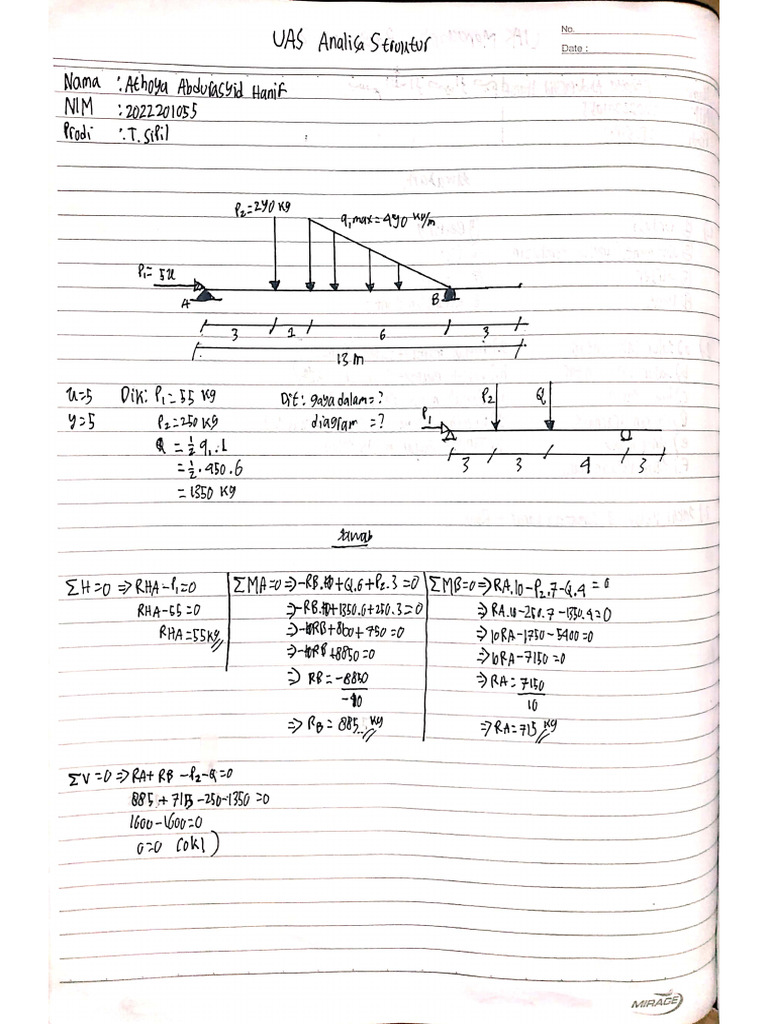 UAS Analisa Struktur
No.
Date :
Nama : Athoya Abdurasyid Hanif
NIM : 2022201055
Prodi : T. Sipil
P₂=2y0 kg
q₁ max = 4y0 kg/m
P₁= 5u
A
B
3 1 6 3
13 m
u=5 Dik: P₁=55 kg Dit: gaya dalam=?
y=5 P₂=250 kg diagram =?
Q = ½ q₁.L
= ½.450.6
= 1350 kg
P₁ P₂ Q
3 3 4 3
Jawab
ΣH=0 => RHA-P₁=0
RHA-55=0
RHA=55kg
ΣMA=0 => -RB.10+Q.6+P₂.3=0
=> -RB.10+1350.6+250.3=0
=> -10RB+8100+750=0
=> -10RB+8850=0
=> RB = -8850
-10
=> RB = 885 kg
ΣMB=0 => RA.10-P₂.7-Q.4=0
=> RA.10-250.7-1350.4=0
=> 10RA-1750-5400=0
=> 10RA-7150=0
=> RA = 7150
10
=> RA=715 kg
ΣV=0 => RA+RB-P₂-Q=0
885+715-250-1350=0
1600-1600=0
0=0 (ok!)
MIRAGE